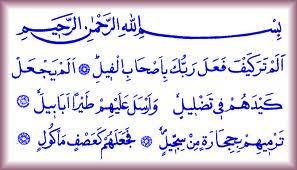 بِسْمِ اللهِ الرَّحْمٰنِ الرَّحِيمِ
اَلَمْ تَرَ كَيْفَ فَعَلَ رَبُّكَ بِاَصْحَابِ الْفِيلِ ۞ اَلَمْ يَجْعَلْ
كَيْدَهُمْ فِى تَضْلِيلٍ ۞ وَاَرْسَلَ عَلَيْهِمْ طَيْرًا اَبَابِيلَ ۞
تَرْمِيهِمْ بِحِجَارَةٍ مِنْ سِجِّيلٍ ۞ فَجَعَلَهُمْ كَعَصْفٍ مَاْكُولٍ ۞